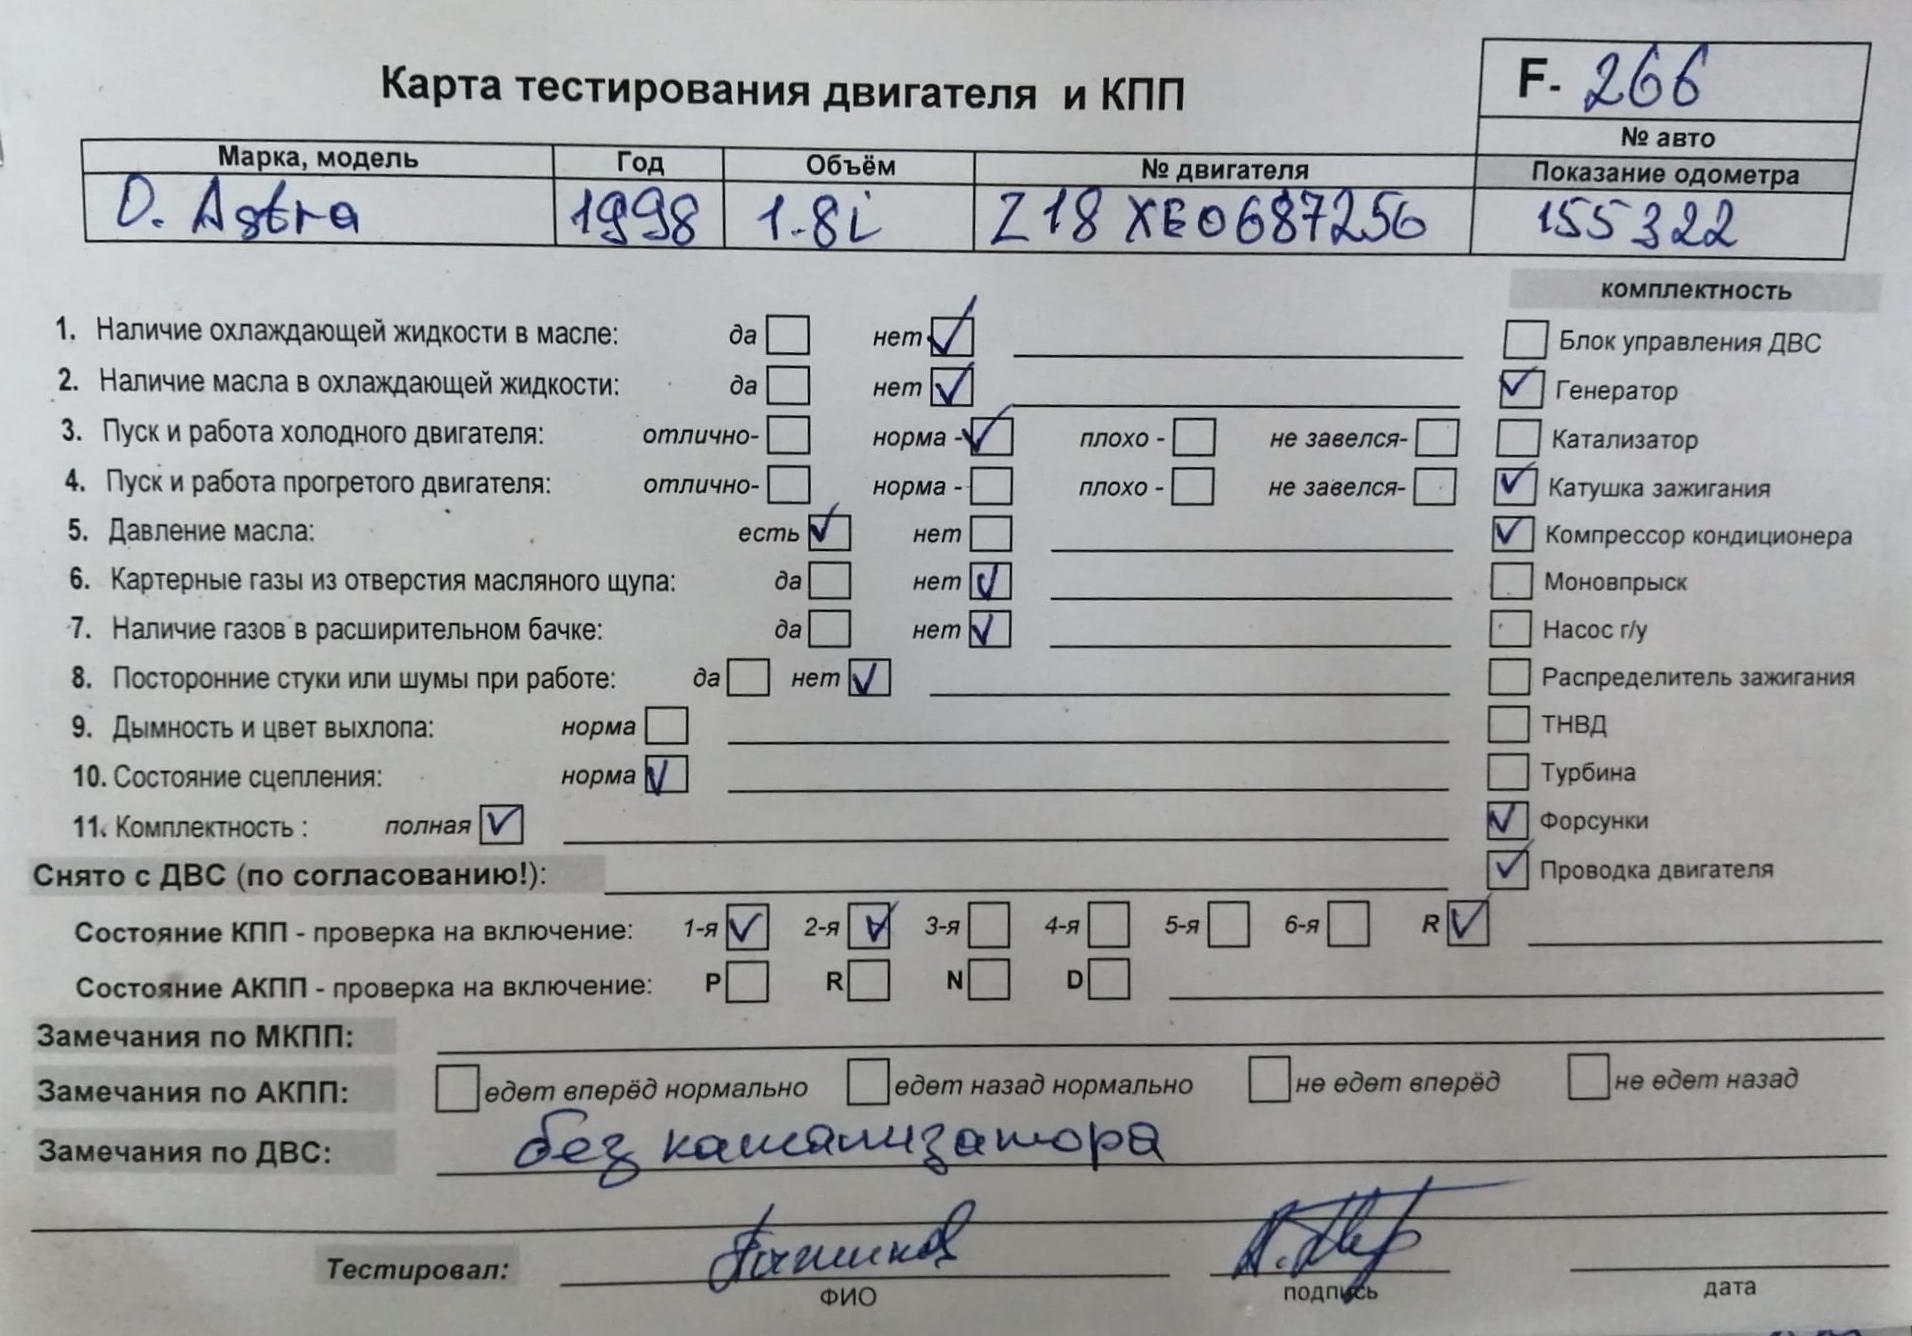 Карта тестирования двигателя и КПП
F- 266
№ авто
Марка, модель Год Объём № двигателя Показание одометра
O. Astra 1998 1.8i Z18XE0687256 155322
комплектность
1. Наличие охлаждающей жидкости в масле: да нет Блок управления ДВС
2. Наличие масла в охлаждающей жидкости: да нет Генератор
3. Пуск и работа холодного двигателя: отлично- норма - плохо - не завелся- Катализатор
4. Пуск и работа прогретого двигателя: отлично- норма - плохо - не завелся- Катушка зажигания
5. Давление масла: есть нет Компрессор кондиционера
6. Картерные газы из отверстия масляного щупа: да нет Моновпрыск
7. Наличие газов в расширительном бачке: да нет Насос г/у
8. Посторонние стуки или шумы при работе: да нет Распределитель зажигания
9. Дымность и цвет выхлопа: норма ТНВД
10. Состояние сцепления: норма Турбина
11. Комплектность : полная Форсунки
Снято с ДВС (по согласованию!): Проводка двигателя
Состояние КПП - проверка на включение: 1-я 2-я 3-я 4-я 5-я 6-я R
Состояние АКПП - проверка на включение: P R N D
Замечания по МКПП:
Замечания по АКПП: едет вперёд нормально едет назад нормально не едет вперёд не едет назад
Замечания по ДВС: без катализатора
Тестировал:
ФИО подпись дата